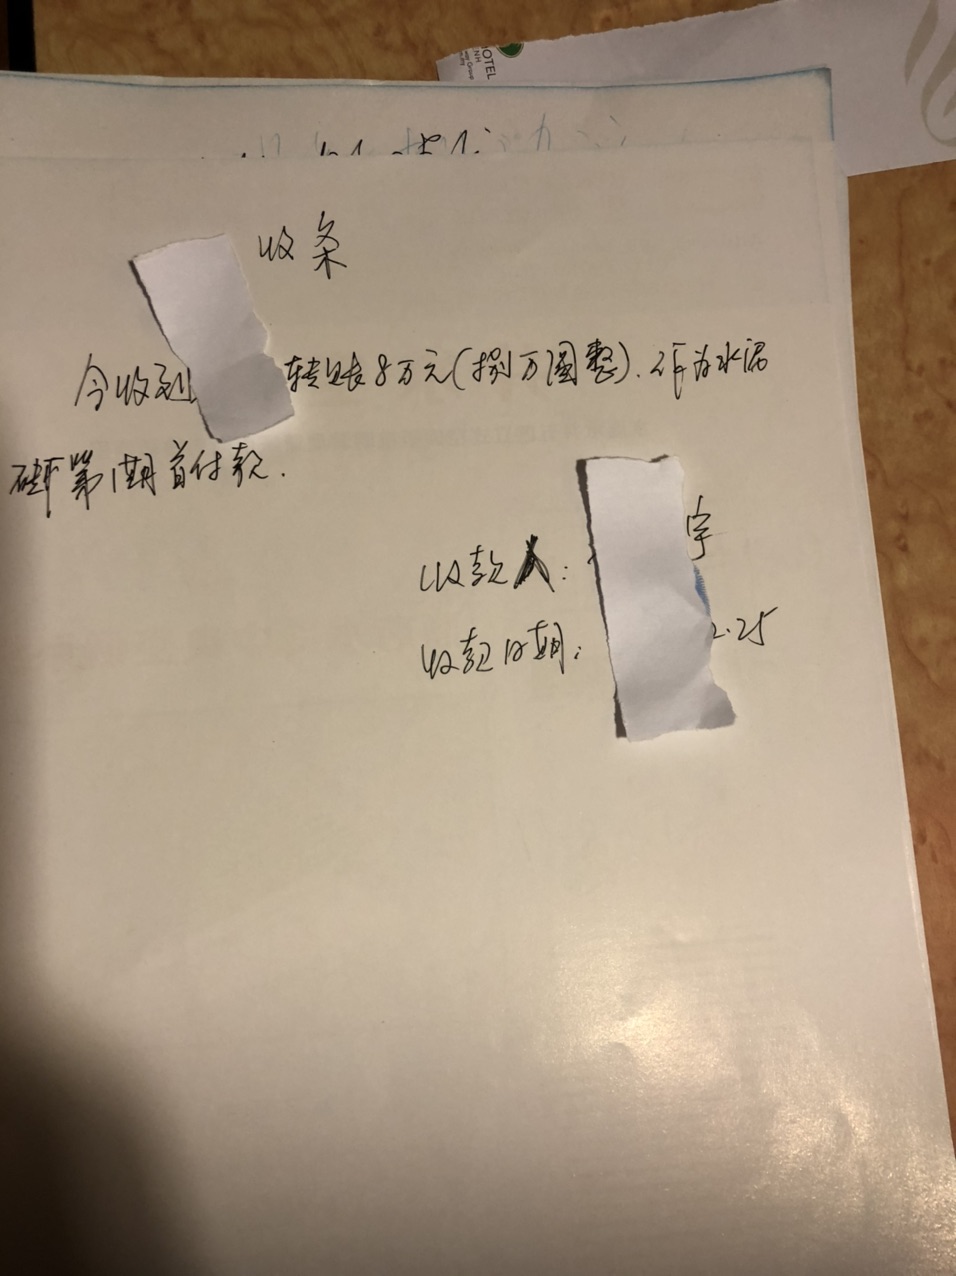 OTEL
NH
收条
今收到 转账8万元(捌万圆整).作为水泥
砖第1期首付款.
收款人: 宇
收款日期: 2.25